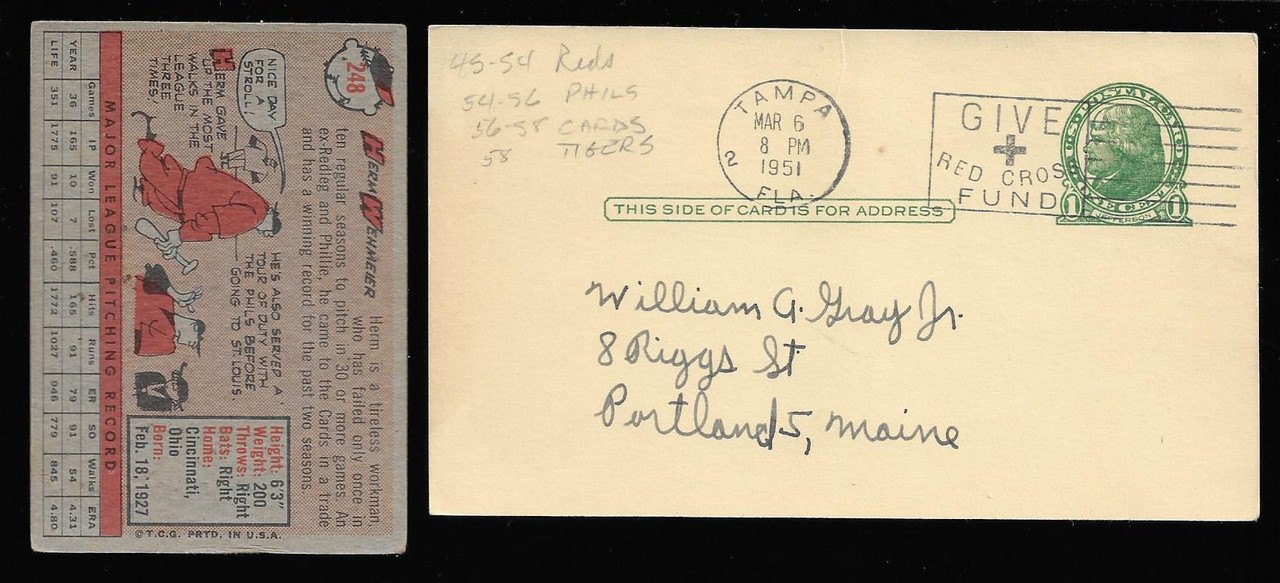 248
HERM WEHMEIER
Herm is a tireless workman,
who has failed only once in
ten regular seasons to pitch in 30 or more games. An
ex-Redleg and Phillie, he came to the Cards in a trade
and has a winning record for the past two seasons.
NICE DAY
FOR A
STROLL!
HERM GAVE
UP THE MOST
WALKS IN THE
LEAGUE
THREE
TIMES.
HE'S ALSO SERVED A
TOUR OF DUTY WITH
THE PHILS BEFORE
GOING TO ST. LOUIS.
Height: 6'3"
Weight: 200
Throws: Right
Bats: Right
Home:
Cincinnati,
Ohio
Born:
Feb. 18, 1927
MAJOR LEAGUE PITCHING RECORD
Games IP Won Lost Pct Hits Runs ER SO Walks ERA
YEAR 36 165 10 7 .588 165 91 79 91 54 4.31
LIFE 351 1775 91 107 .460 1772 1027 946 779 845 4.80
© T.C.G. PRTD. IN U.S.A.
45-54 Reds
54-56 PHILS
56-58 CARDS
58 TIGERS
TAMPA
MAR 6
8 PM
1951
2
FLA.
GIVE
RED CROSS
FUND
U.S. POSTAL CARD
ONE CENT
1 JEFFERSON 1
THIS SIDE OF CARD IS FOR ADDRESS
William A. Gray Jr.
8 Riggs St
Portland 5, Maine